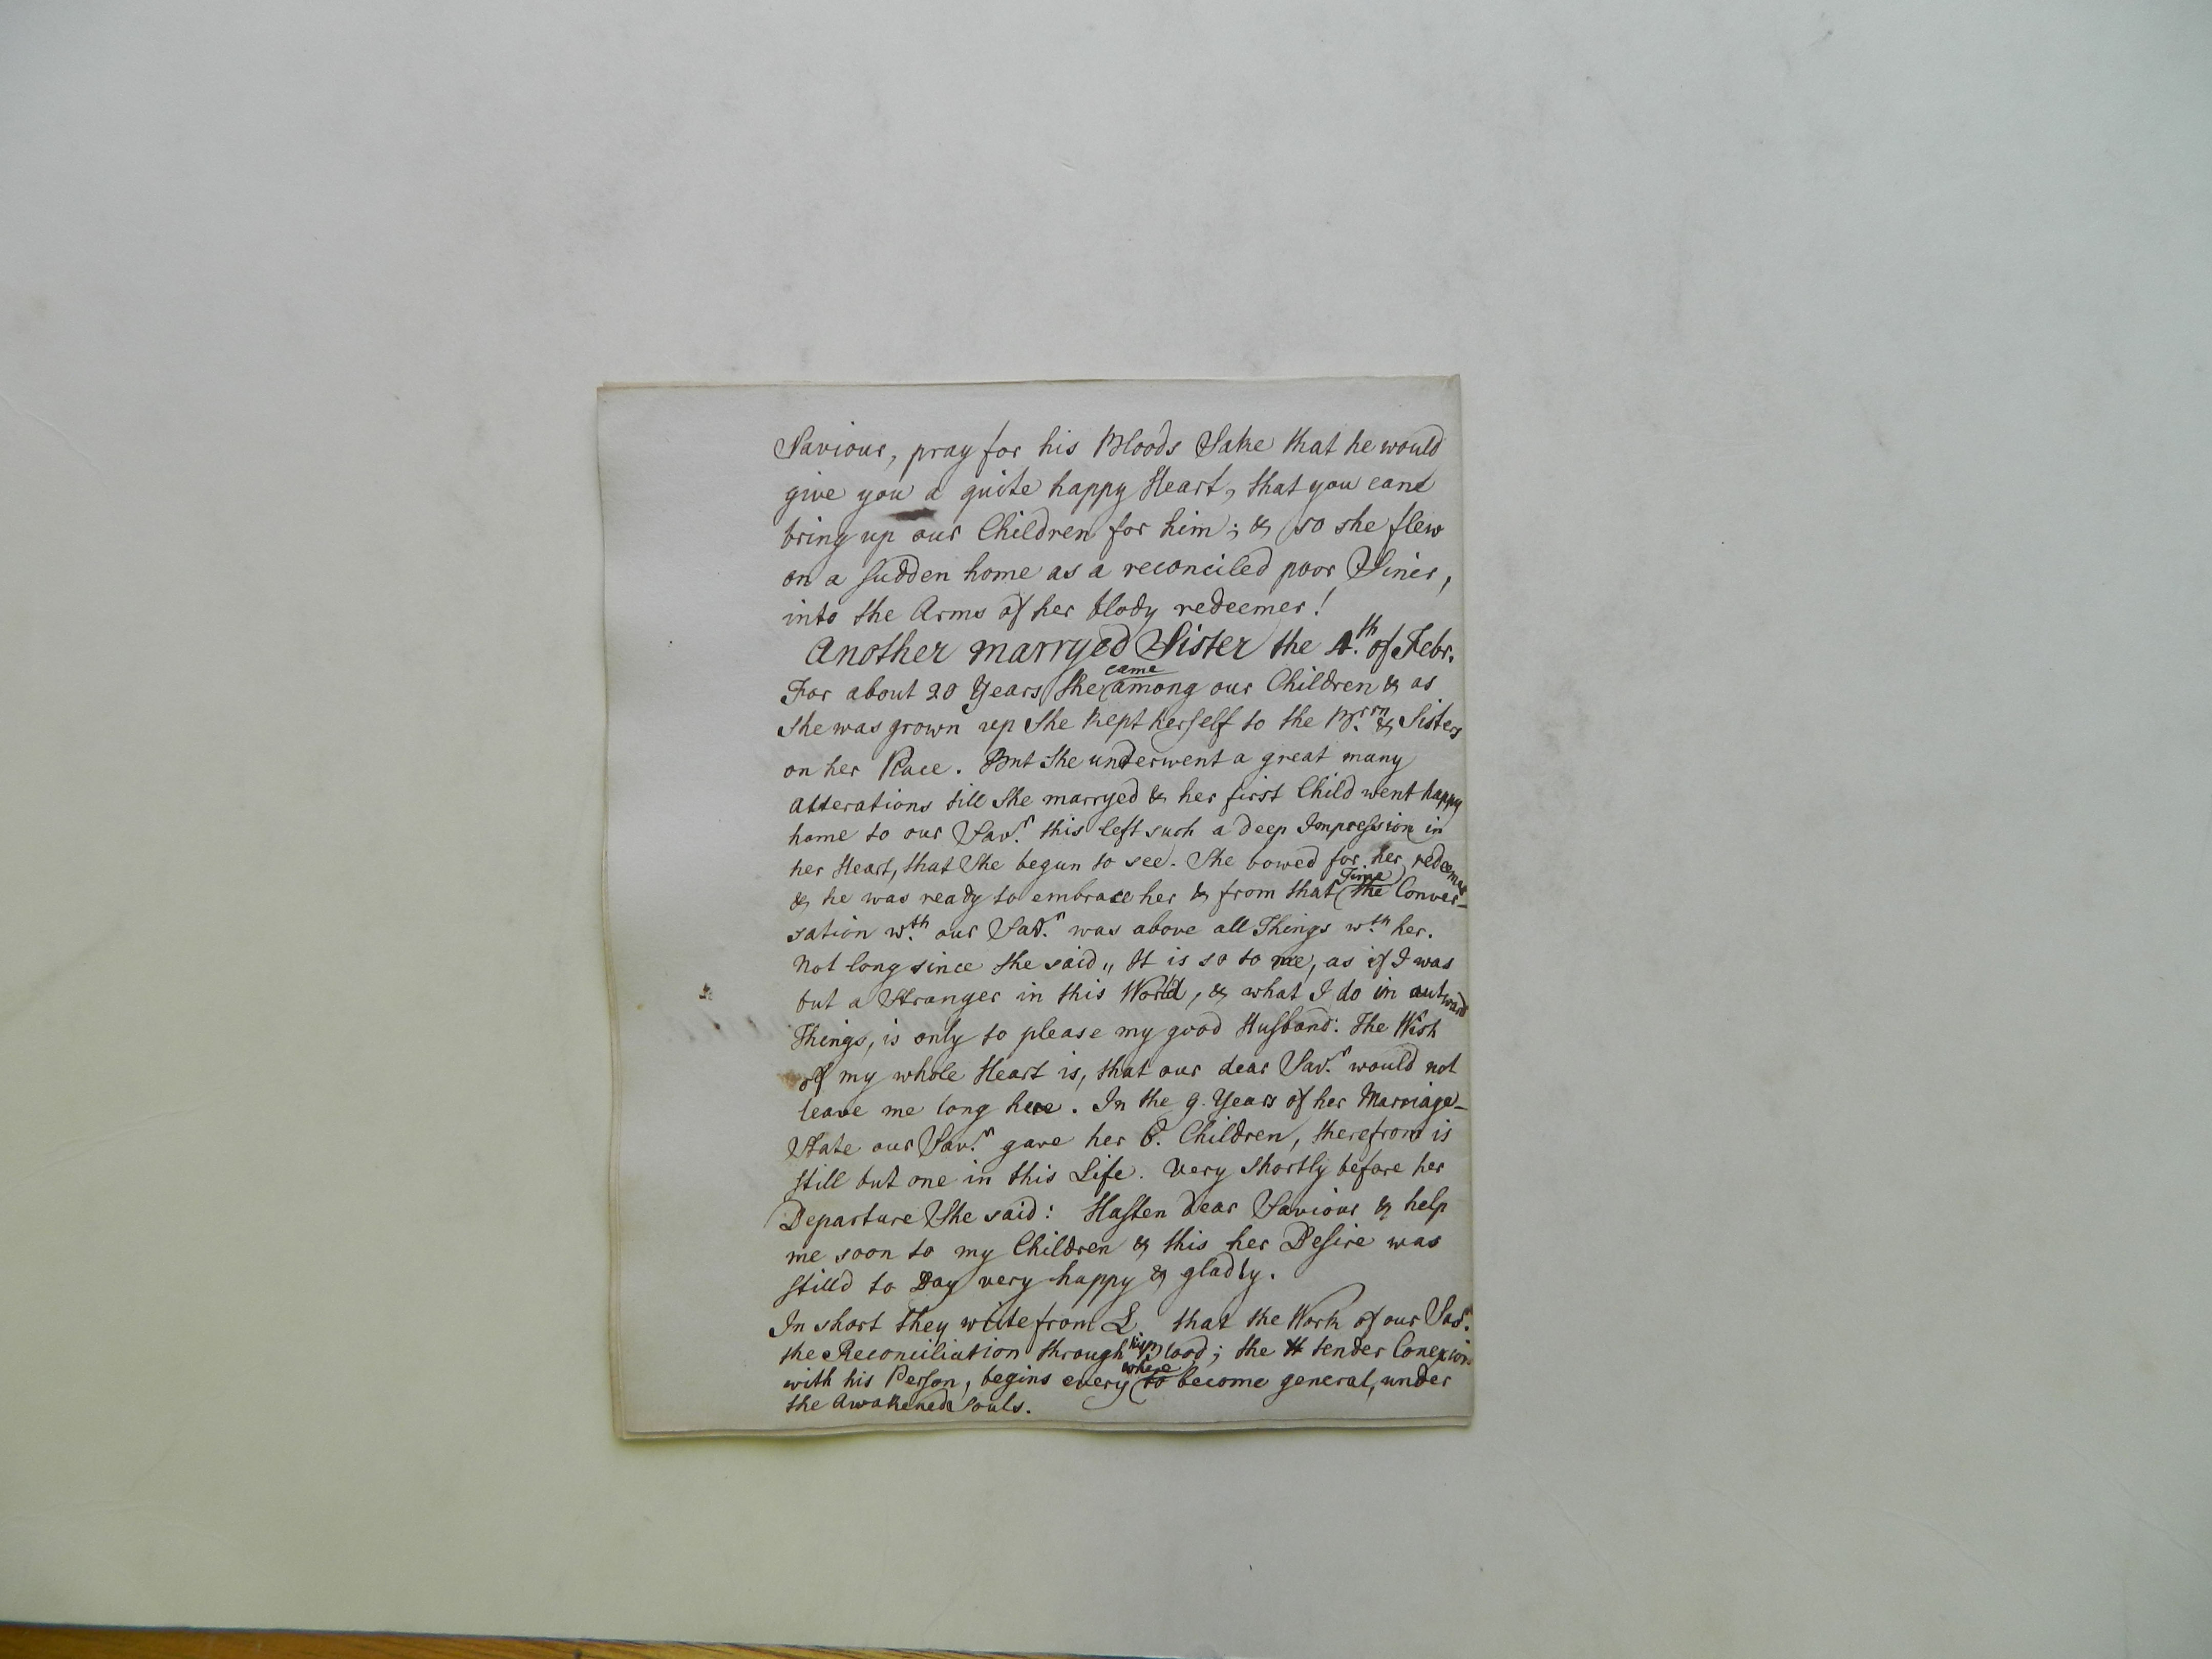 Saviour, pray for his Bloods Sake that he would
give you a quite happy Heart, that you cane
bring up our Children for him; & so she flew
on a sudden home as a reconciled poor Siner,
into the Arms of her blody redeemer!
Another marryed Sister the 4.th of Febr.
For about 20 Years She came among our Children & as
She was grown up She kept herself to the Br.rn & Sisters
on her Place. But She underwent a great many
alterations till She marryed & her first Child went happy
home to our Sav.r this left such a deep Impression in
her Heart, that She begun to see. She vowed for her redeemer
& he was ready to embrace her & from that Time the Conver-
sation w.th our Sav.r was above all Things w.th her.
Not long since She said „ It is so to me, as if I was
but a Stranger in this World, & what I do in outward
Things, is only to please my good Husband: The Wish
of my whole Heart is, that our dear Sav.r would not
leave me long here. In the 9. Years of her Marriage-
State our Sav.r gave her 6. Children, therefrom is
still but one in this Life. Very Shortly before her
Departure She said: Hasten dear Saviour & help
me soon to my Children & this her Desire was
stilld to Day very happy & gladly.
In short They write from L that the Work of our Sav.r
the Reconciliation through his Blood; the tender Conexion
with his Person, begins every where to become general, under
the Awakened Souls.